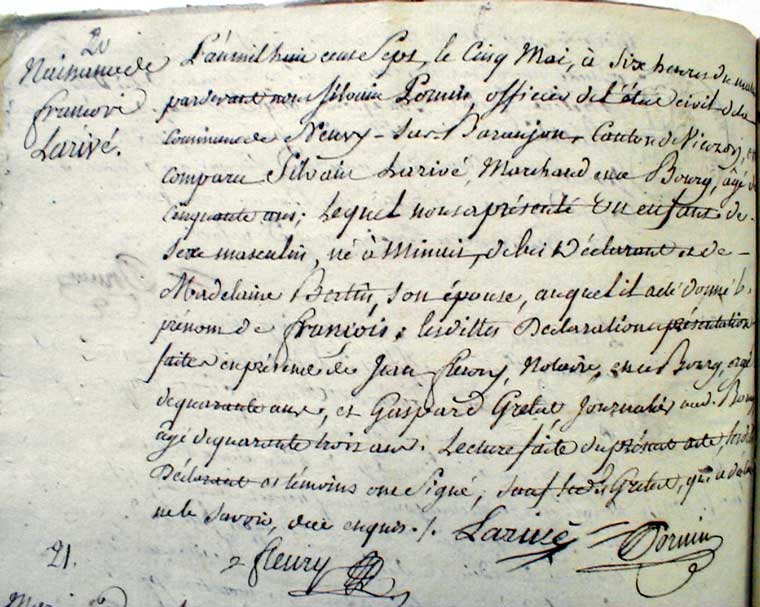 20
Naissance de
francois
Larivé.
L'an mil huit cent Sept, le Cinq Mai, à Six heures du matin
pardevant nous Silvain Dornin, officier de l'état civil de la
Commune de Neuvy-Sur-Baranjon, Canton de Vierzon, est
comparu Silvain Larivé, Marchand en ce Bourg, âgé de
cinquante ans; Lequel nous a présenté Un enfant de
Sexe masculin, né à Minuit, de lui Déclarant et de
Madelaine Bertin, Son épouse, auquel il a de donné le
prénom de françois; lesdittes Déclaration et présentation
faites en présence de Jean fleury, Notaire, en ce Bourg, agé
de quarante ans, et Gaspard Gretet Journalier aud. Bourg
âgé de quarante trois ans. Lecture faite du présent acte, lesdits
Déclarant et témoins ont Signé, Sauf ledit Gretet, qui a déclaré
ne le Savoir, de ce enquis ./. Larivé Dornin
fleury
21.